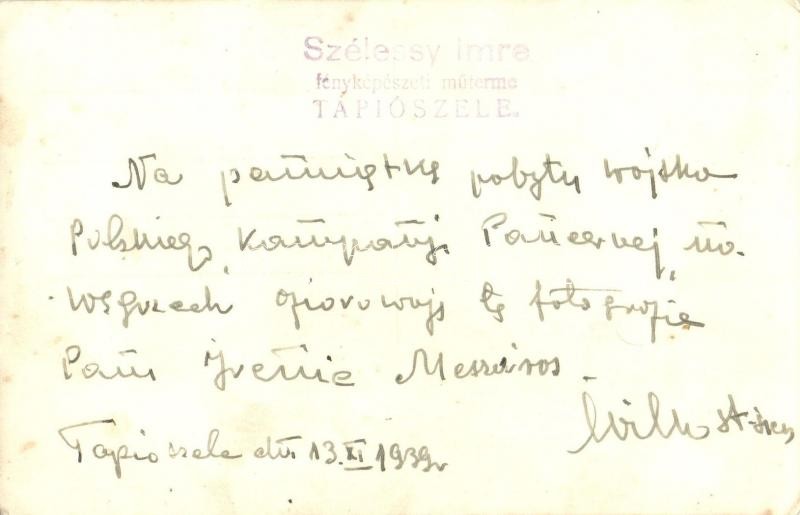 Szélessy Imre
fényképészeti műterme
TÁPIÓSZELE.
Na pamiątkę pobytu wojska
Polskiego Kampanji Pancernej na
Węgrzech ofiarowaję tę fotografię
Pani Irenie Meszáros.
Tapioszele dn. 13.XI 1939r
Wilk